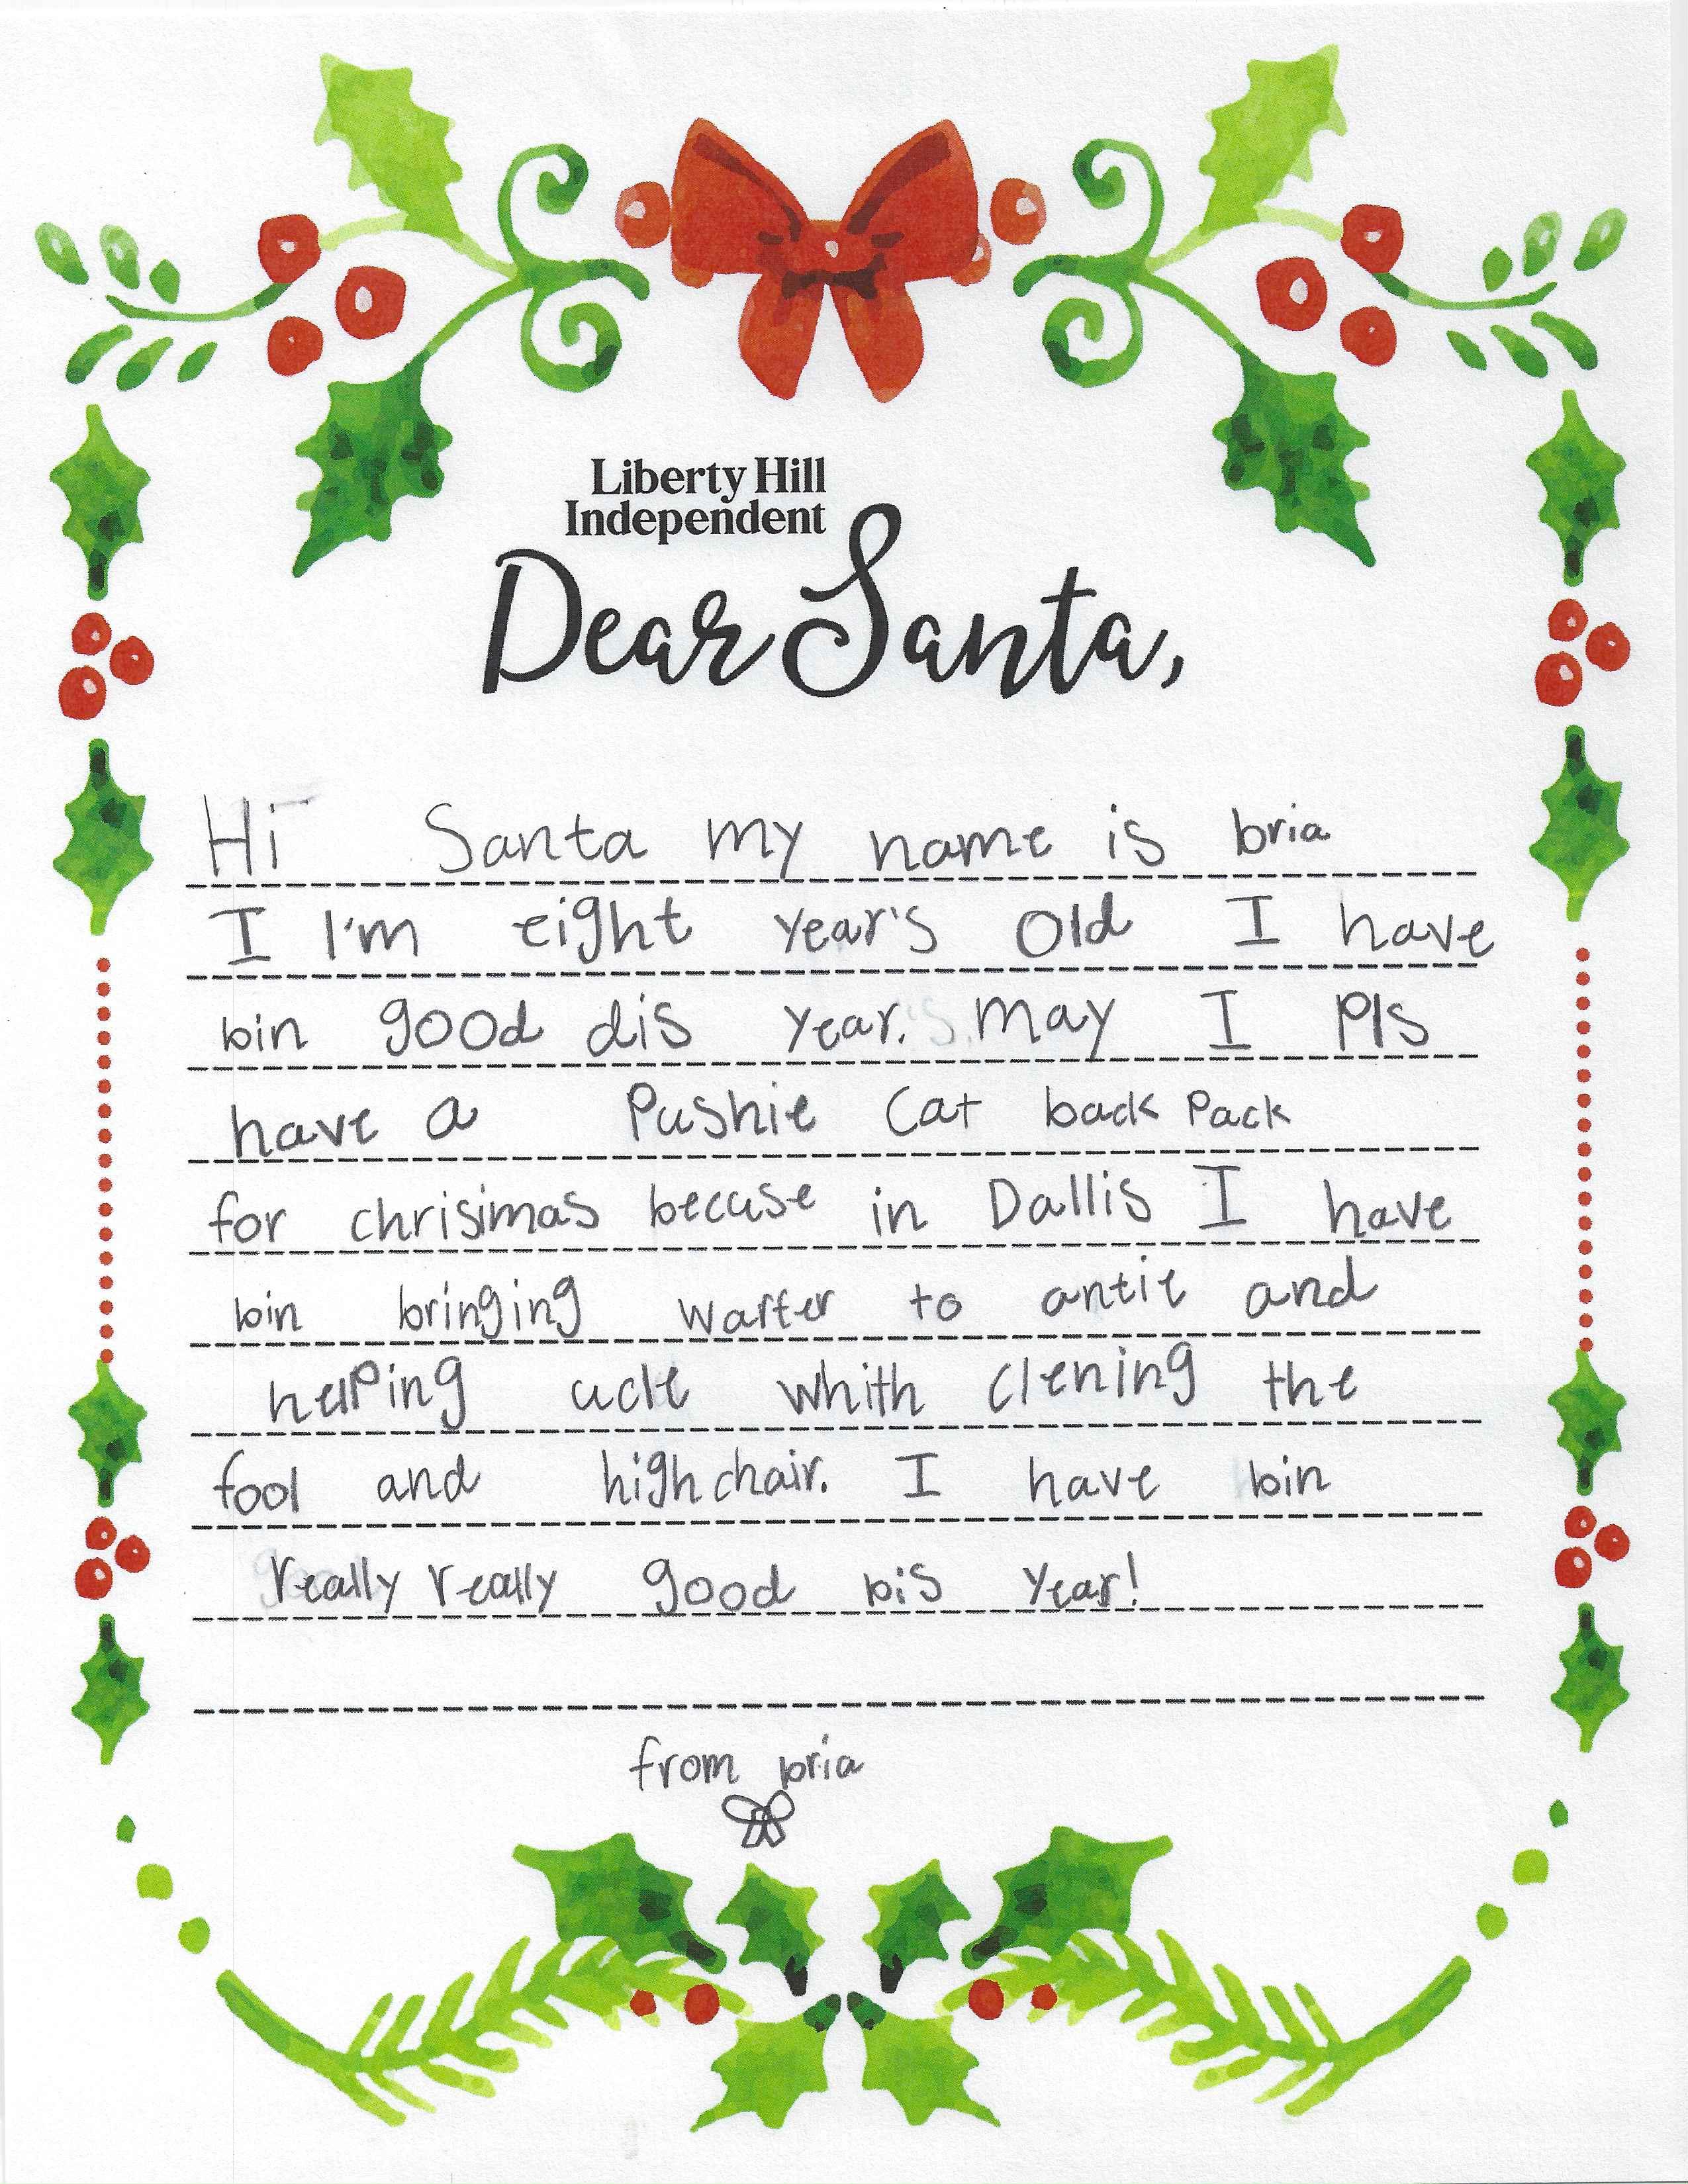 Liberty Hill
Independent
Dear Santa,
Hi Santa my name is bria
I I'm eight year's old I have
bin good dis year. may I Pls
have a Pushie Cat back Pack
for chrisimas becuse in Dallis I have
bin bringing warter to antie and
helping ucle whith clening the
fool and high chair. I have bin
really really good bis year!
from bria